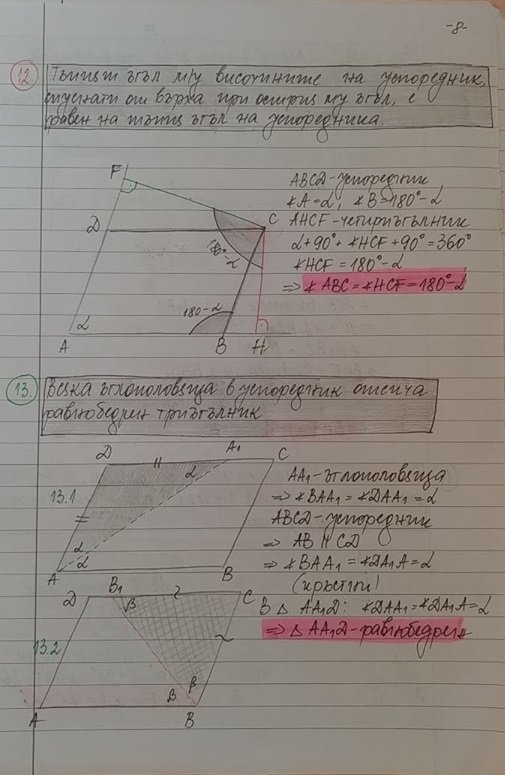 -8-
12
Тъпият ъгъл м/у височините на успоредник,
спуснати от върха при острия му ъгъл, е
равен на тъпия ъгъл на успоредника.
F
D
C
180°-α
180-α
α
A
B
H
ABCD-успоредник
∢A=α, ∢B=180°-α
AHCF-четириъгълник
α+90°+∢HCF+90°=360°
∢HCF=180°-α
⇒ ∢ABC=∢HCF=180°-α
13.
Всяка ъглополовяща в успоредник отсича
равнобедрен триъгълник
13.1
D
A₁
C
α
α
α
A
B
AA₁-ъглополовяща
⇒ ∢BAA₁=∢DAA₁=α
ABCD-успоредник
⇒ AB II CD
⇒ ∢BAA₁=∢DA₁A=α
(кръстни)
В △ AA₁D: ∢DAA₁=∢DA₁A=α
⇒ △ AA₁D-равнобедрен
13.2
D
B₁
C
β
β
β
A
B